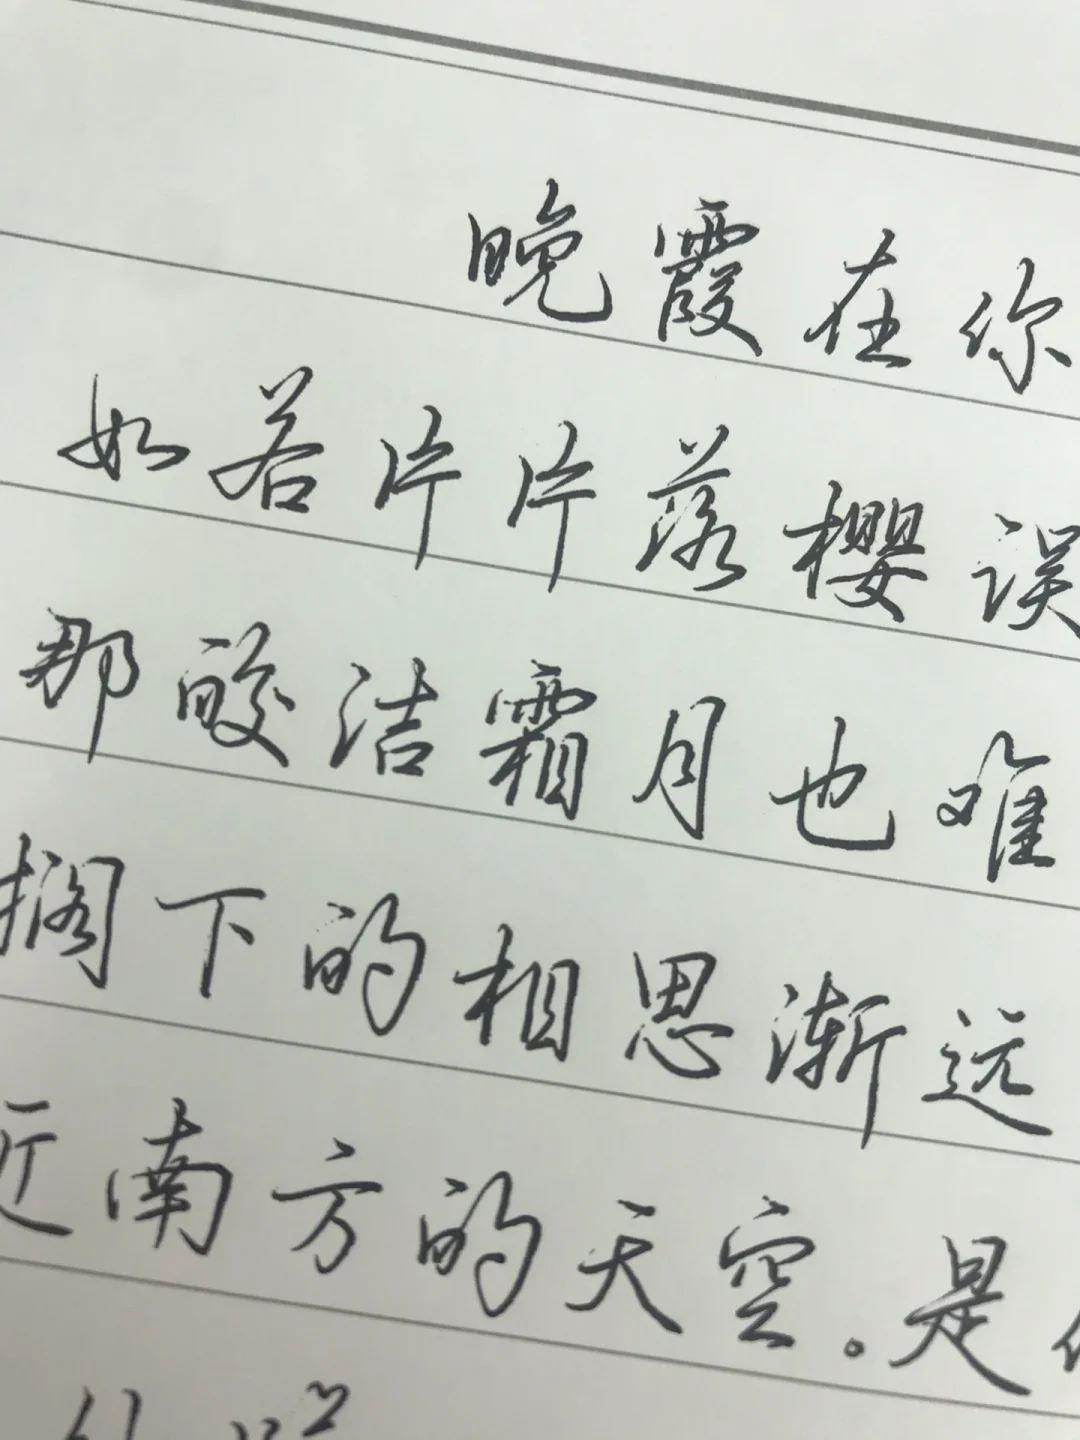 晚霞在你
如若片片落樱误
那皎洁霜月也难
搁下的相思渐远
近南方的天空。是